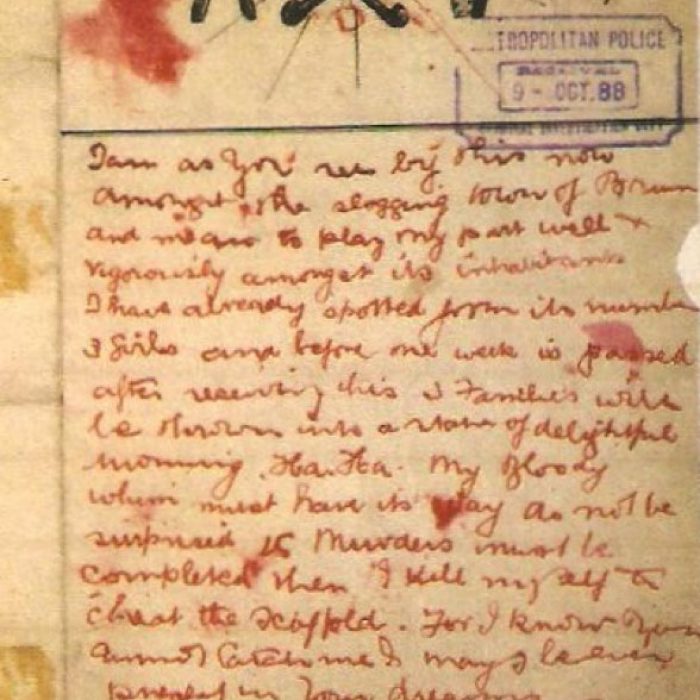 METROPOLITAN POLICE
RECEIVED
9 - OCT. 88
CRIMINAL INVESTIGATION
I am as you see by this now
amongst the slogging town of Brum
and mean to play my part well &
vigorously amongst its inhabitants
I have already spotted from its number
3 Girls and before one week is passed
after receiving this 3 Families will
be thrown into a state of delightful
mourning. Ha. Ha. My Bloody
whim must have its way do not be
surprised 15 Murders must be
completed then I kill myself to
cheat the scaffold. For I know you
cannot catch me & may be even
present in your